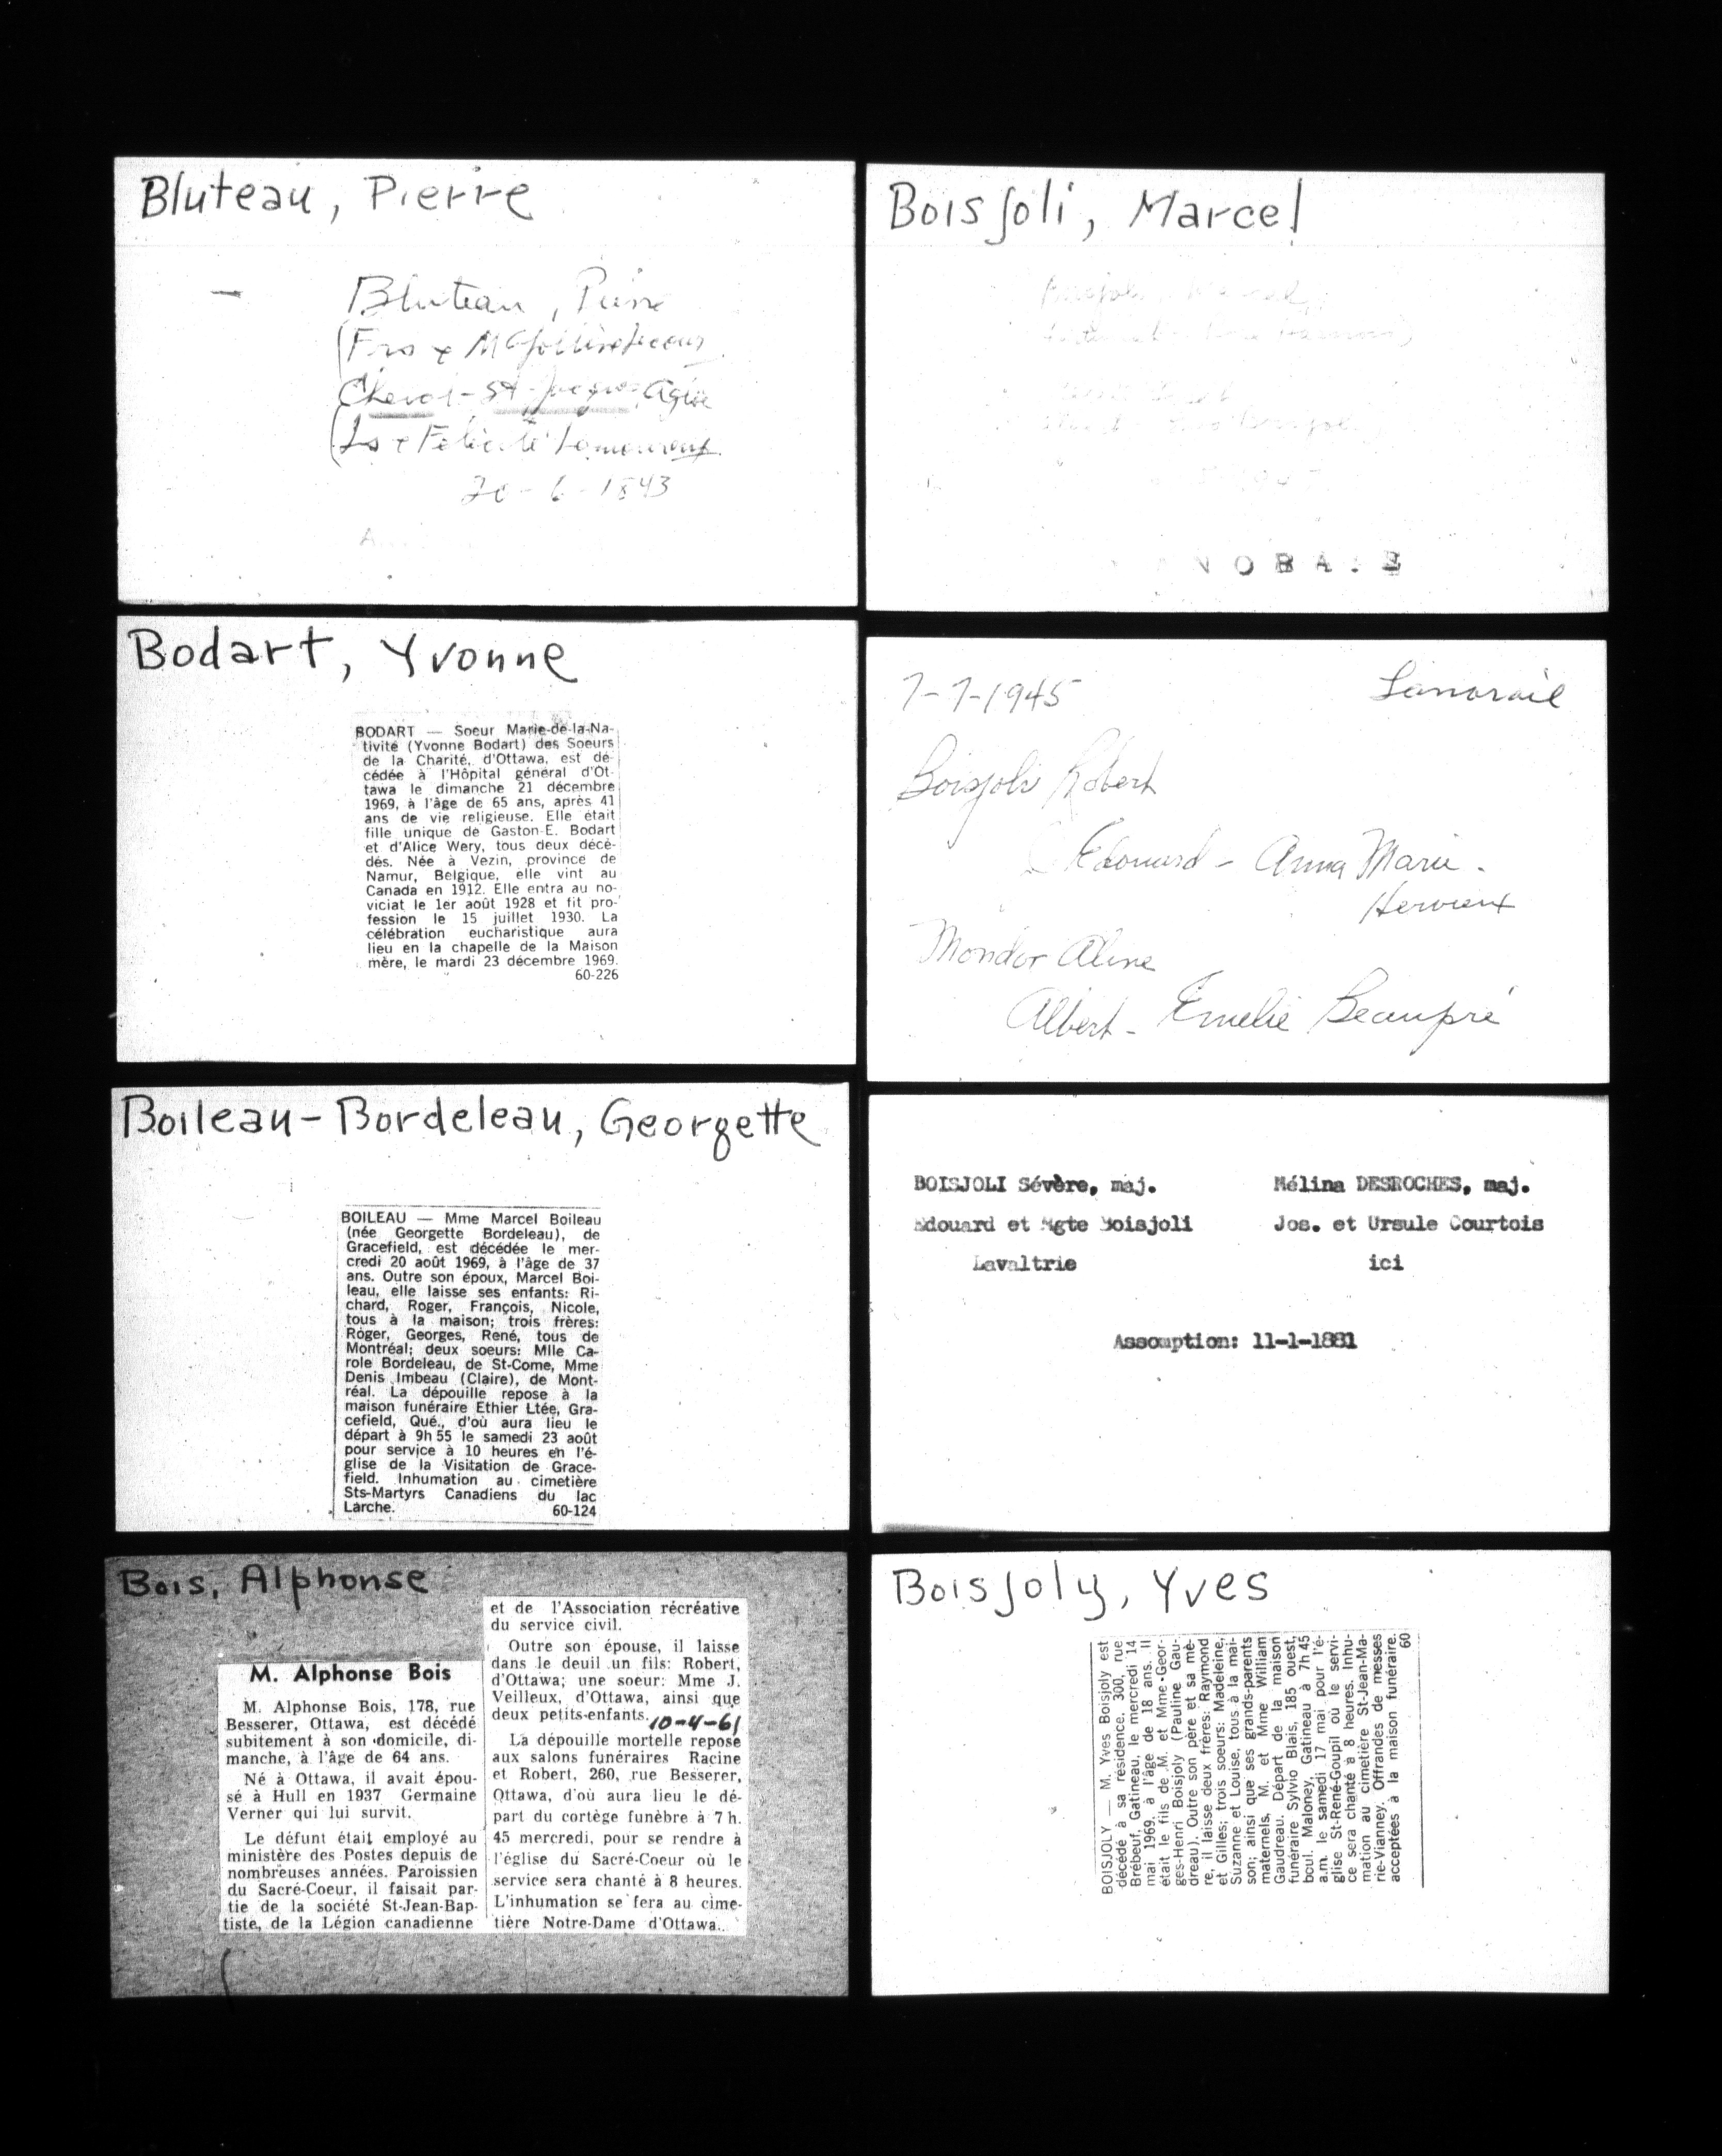 Bluteau, Pierre
Bluteau, Pierre
(Frs & 
Chevol - St-Jacques
(Ls & Félicité Lamoureux
-6-1843
Bodart, Yvonne
BODART — Soeur Marie-de-la-Na-
tivité (Yvonne Bodart) des Soeurs
de la Charité, d'Ottawa, est dé-
cédée à l'Hôpital général d'Ot-
tawa le dimanche 21 décembre
1969, à l'âge de 65 ans, après 41
ans de vie religieuse. Elle était
fille unique de Gaston-E. Bodart
et d'Alice Wery, tous deux décé-
dés. Née à Vezin, province de
Namur, Belgique, elle vint au
Canada en 1912. Elle entra au no-
viciat le 1er août 1928 et fit pro-
fession le 15 juillet 1930. La
célébration eucharistique aura
lieu en la chapelle de la Maison
mère, le mardi 23 décembre 1969.
60-226
Boileau-Bordeleau, Georgette
BOILEAU — Mme Marcel Boileau
(née Georgette Bordeleau), de
Gracefield, est décédée le mer-
credi 20 août 1969, à l'âge de 37
ans. Outre son époux, Marcel Boi-
leau, elle laisse ses enfants: Ri-
chard, Roger, François, Nicole,
tous à la maison; trois frères:
Roger, Georges, René, tous de
Montréal; deux soeurs: Mlle Ca-
role Bordeleau, de St-Come, Mme
Denis Imbeau (Claire), de Mont-
réal. La dépouille repose à la
maison funéraire Ethier Ltée, Gra-
cefield, Qué., d'où aura lieu le
départ à 9h 55 le samedi 23 août
pour service à 10 heures en l'é-
glise de la Visitation de Grace-
field. Inhumation au cimetière
Sts-Martyrs Canadiens du lac
Larche.
60-124
Bois, Alphonse
M. Alphonse Bois
M. Alphonse Bois, 178, rue
Besserer, Ottawa, est décédé
subitement à son domicile, di-
manche, à l'âge de 64 ans.
Né à Ottawa, il avait épou-
sé à Hull en 1937 Germaine
Verner qui lui survit.
Le défunt était employé au
ministère des Postes depuis de
nombreuses années. Paroissien
du Sacré-Coeur, il faisait par-
tie de la société St-Jean-Bap-
tiste, de la Légion canadienne
et de l'Association récréative
du service civil.
Outre son épouse, il laisse
dans le deuil un fils: Robert,
d'Ottawa; une soeur: Mme J.
Veilleux, d'Ottawa, ainsi que
deux petits-enfants.
10-4-61
La dépouille mortelle repose
aux salons funéraires Racine
et Robert, 260, rue Besserer,
Ottawa, d'où aura lieu le dé-
part du cortège funèbre à 7 h.
45 mercredi, pour se rendre à
l'église du Sacré-Coeur où le
service sera chanté à 8 heures.
L'inhumation se fera au cime-
tière Notre-Dame d'Ottawa.
Boisjoli, Marcel
7-7-1945 Lanoraie
Boisjoli Robert
Edouard - Anna Marie -
Hervieux
Mondor Aline
Albert - Emelie Beaupré
BOISJOLI Sévère, maj. Mélina DESROCHES, maj.
Edouard et Mgte Boisjoli Jos. et Ursule Courtois
Lavaltrie ici
Assomption: 11-1-1881
Boisjoly, Yves
BOISJOLY — M. Yves Boisjoly est
décédé à sa résidence, 300, rue
Brébeuf, Gatineau, le mercredi 14
mai 1969, à l'âge de 18 ans. Il
était le fils de M. et Mme Geor-
ges-Henri Boisjoly (Pauline Gau-
dreau). Outre son père et sa mè-
re, il laisse deux frères: Raymond
et Gilles; trois soeurs: Madeleine,
Suzanne et Louise, tous à la mai-
son; ainsi que ses grands-parents
maternels, M. et Mme William
Gaudreau. Départ de la maison
funéraire Sylvio Blais, 185 ouest,
boul. Maloney, Gatineau à 7h 45
a.m. le samedi 17 mai pour l'é-
glise St-René-Goupil où le servi-
ce sera chanté à 8 heures. Inhu-
mation au cimetière St-Jean-Ma-
rie-Vianney. Offrandes de messes
acceptées à la maison funéraire.
60